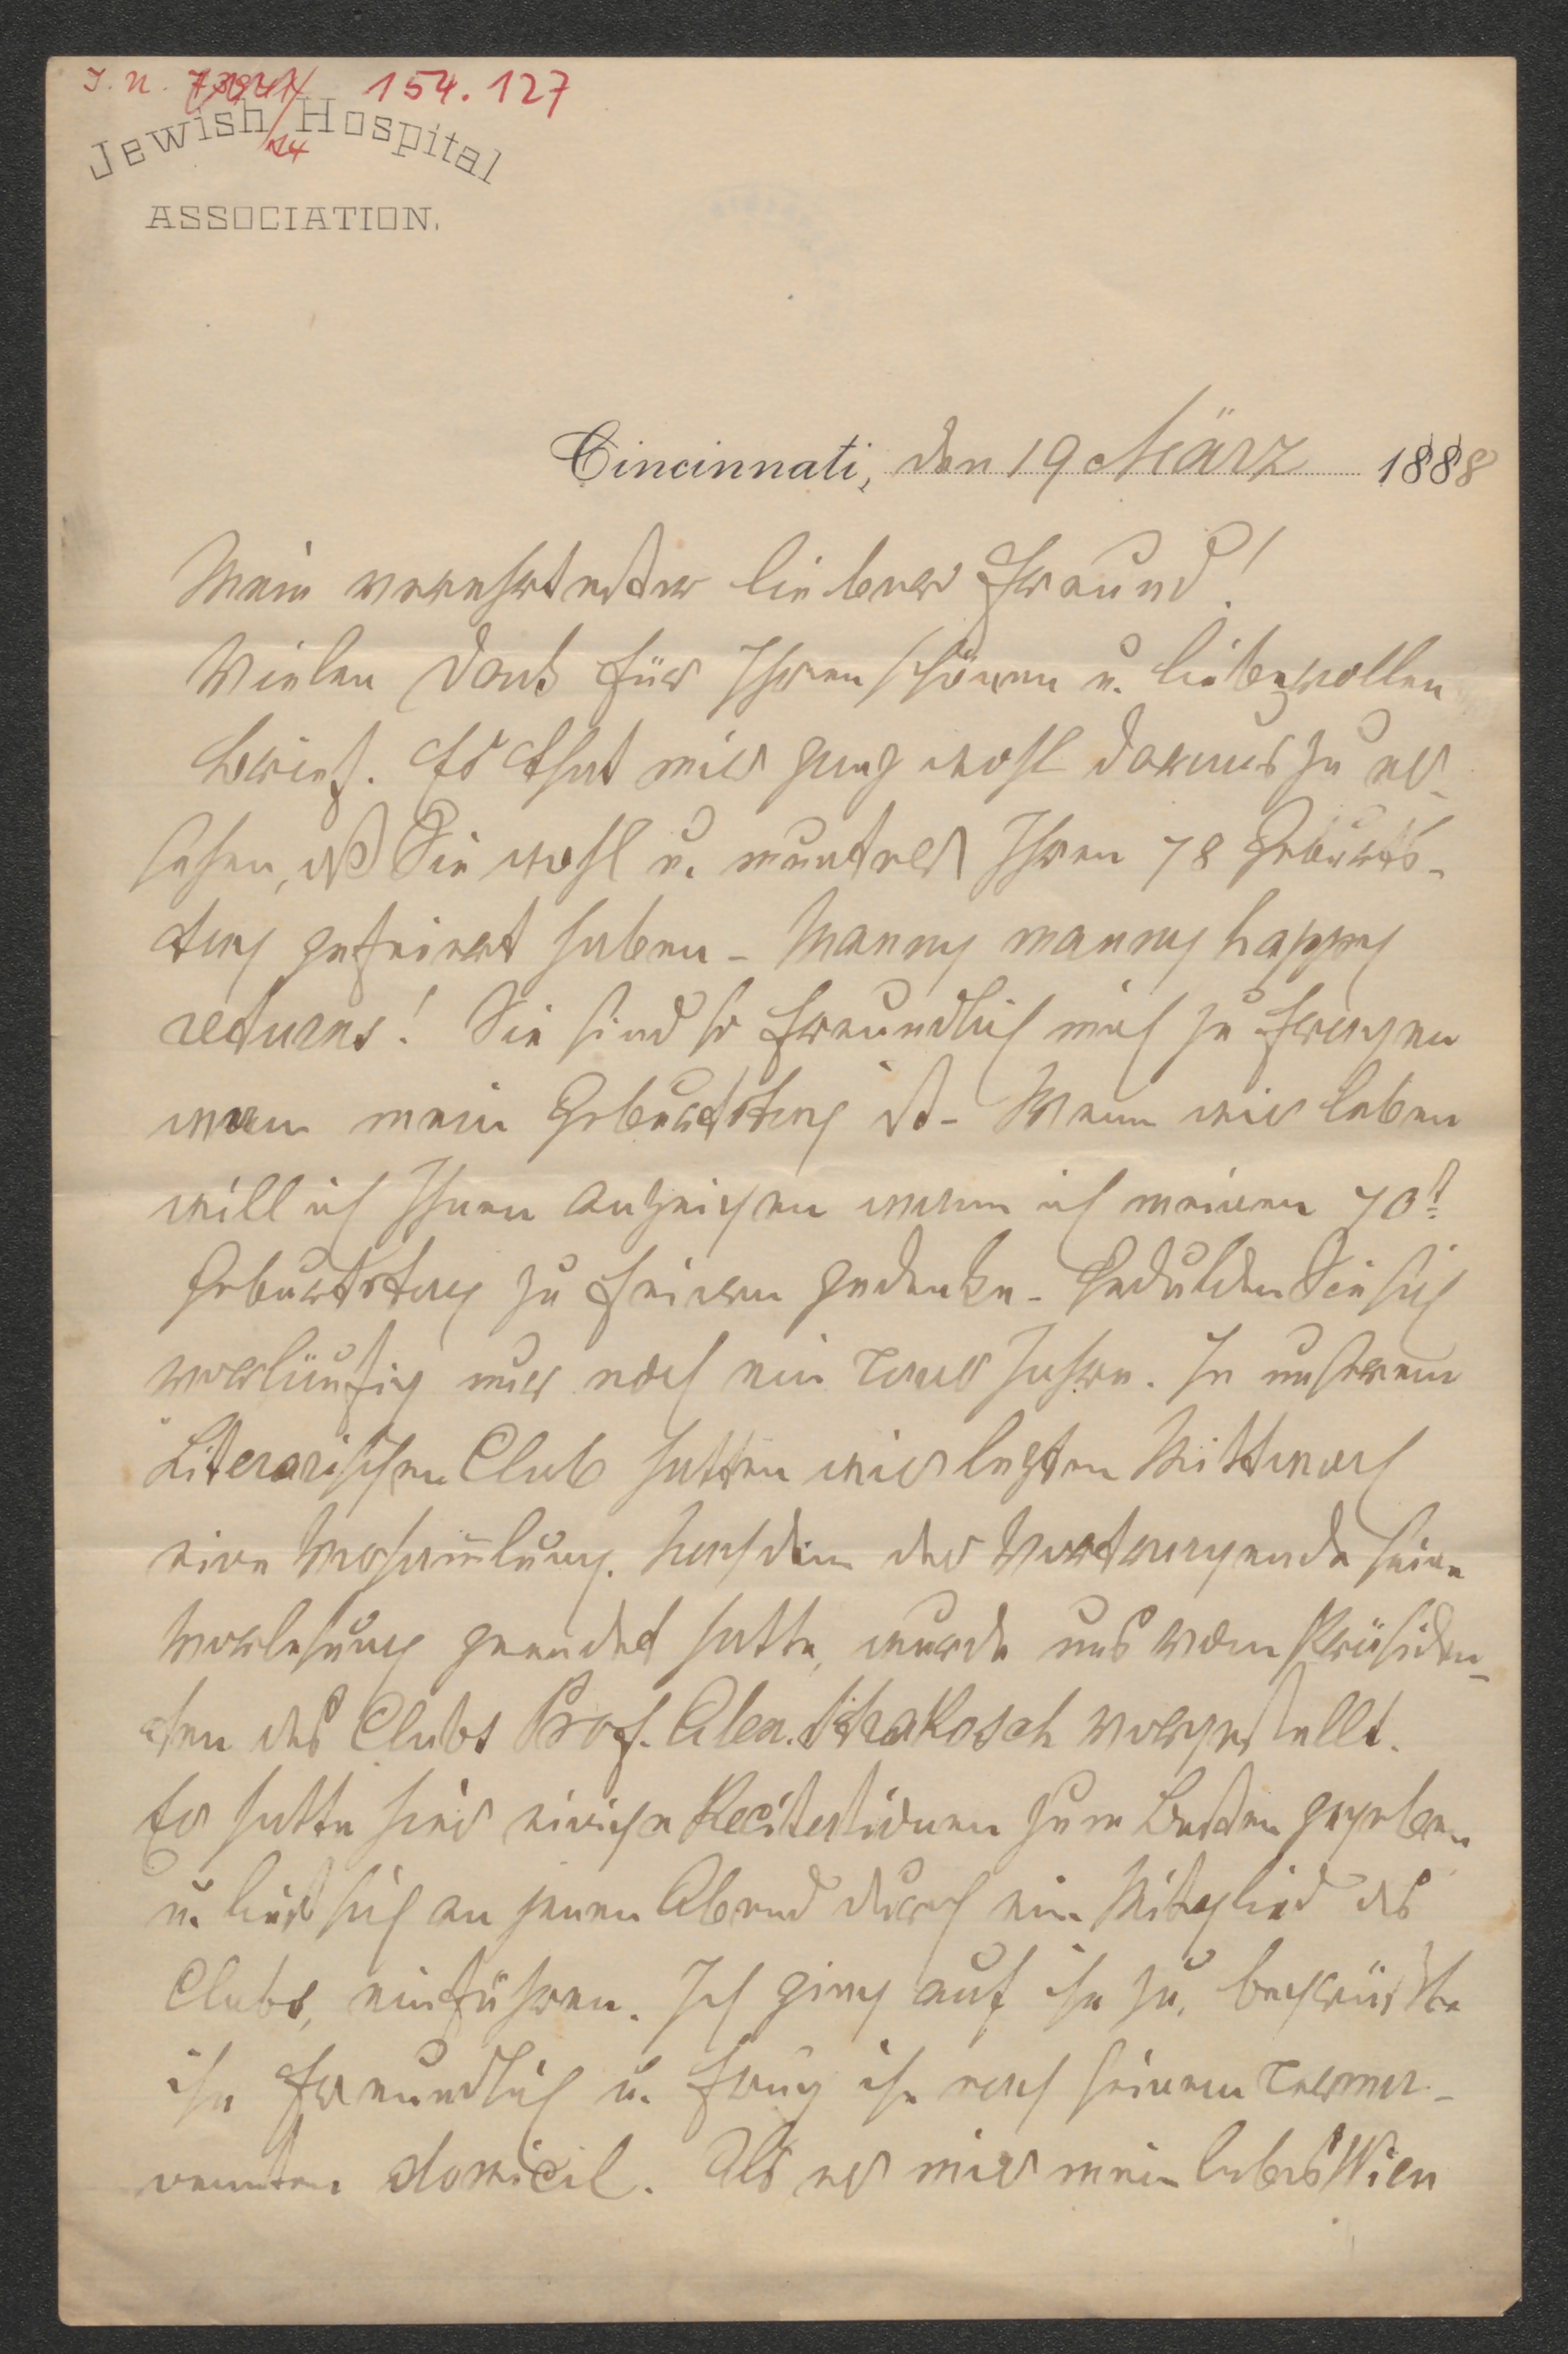 I. N. 73941/14 154.127
Jewish Hospital
ASSOCIATION.
Cincinnati, den 19 März 1888
Mein verehrtester lieber Freund!
Vielen Dank für Ihren schönen u. liebevollen
Brief. Es that mir ganz wohl daraus zu er-
sehen, dß Sie wohl u. munter Ihren 78 Geburts-
tag gefeiert haben - Manny manny happy
returns! Sie sind so freundlich mich zu fragen
wan mein Geburtstag ist - Wenn wir leben
will ich Ihnen anzeigen wann ich meinen 70t
Geburtstag zu feiern gedenke - Gedulden Sie sich
vorläufig nur noch ein Paar Jahre. In unserem
Literarischen Club hatten wir letzten Mittwoch
eine Versam̄lung. Nachdem der Vortragende seine
Vorlesung geendet hatte, wurde uns vom Präsiden-
ten des Clubs Prof. Alex. Strakosch vorgestellt.
Er hatte hier einige Recitationen zum Besten gegeben
u. ließ sich an jenen Abend durch ein Mitglied des
Clubs, einführen. Ich ging auf ihn zu, begrüßte
ihn freundlich u. frug ihn nach seinem Perma-
nenten domicil. Als er mir mein liebes Wien